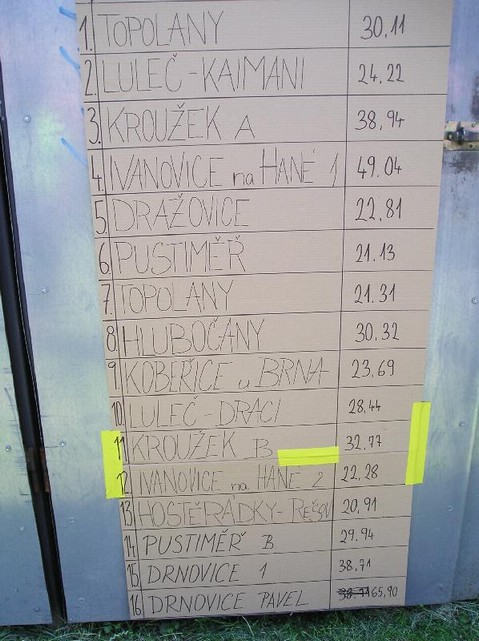 1. TOPOLANY 30.11
2. LULEČ-KAJMANI 24.22
3. KROUŽEK A 38,94
4. IVANOVICE na HANÉ 1 49.04
5. DRAŽOVICE 22.81
6. PUSTIMĚŘ 21.13
7. TOPOLANY 21.31
8. HLUBOČANY 30.32
9. KOBEŘICE u BRNA 23.69
10. LULEČ-DRACI 28.44
11. KROUŽEK B 32.77
12. IVANOVICE na HANÉ 2 22,28
13. HOSTĚRÁDKY-REŠOV 20,91
14. PUSTIMĚŘ B 29.94
15. DRNOVICE 1 38,71
16. DRNOVICE PAVEL 65,90